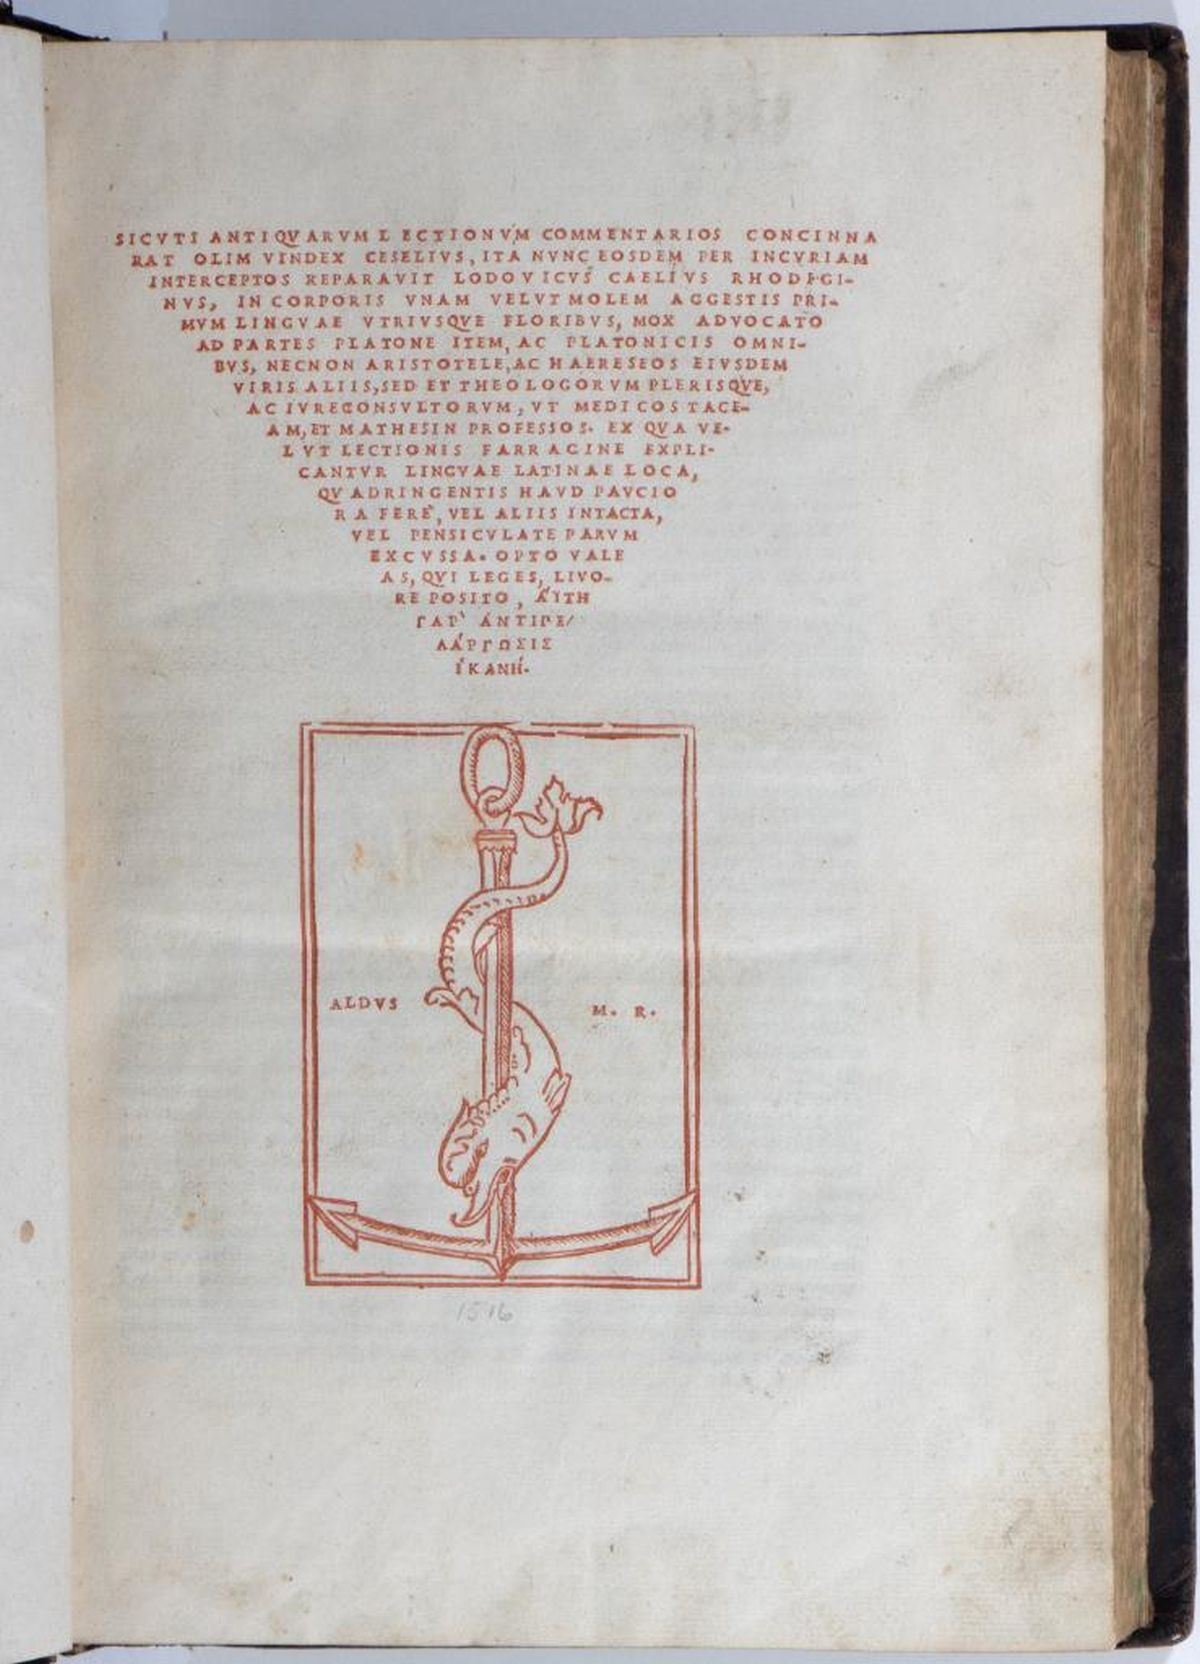 SICVTI ANTIQVARVM LECTIONVM COMMENTARIOS CONCINNA
RAT OLIM VINDEX CESELIVS, ITA NVNC EOSDEM PER INCVRIAM
INTERCEPTOS REPARAVIT LODOVICVS CAELIVS RHODIGI-
NVS, IN CORPORIS VNAM VELVT MOLEM AGGESTIS PRI-
MVM LINGVAE VTRIVSQVE FLORIBVS, MOX ADVOCATO
AD PARTES PLATONE ITEM, AC PLATONICIS OMNI-
BVS, NECNON ARISTOTELE, AC HAERESEOS EIVSDEM
VIRIS ALIIS, SED ET THEOLOGORVM PLERISQVE,
AC IVRECONSVLTORVM, VT MEDICOS TACE-
AM, ET MATHESIN PROFESSOS. EX QVA VE-
LVT LECTIONIS FARRAGINE EXPLI-
CANTVR LINGVAE LATINAE LOCA,
QVADRINGENTIS HAVD PAVCIO
RA FERE, VEL ALIIS INTACTA,
VEL PENSICVLATE PARVM
EXCVSSA. OPTO VALE
AS, QVI LEGES, LIVO-
RE POSITO, ἈΎΤΗ
ΓΑΡ̀ ἈΝΤΙΠΕ/
ΛΆΡΓΩΣΙΣ
ἹΚΑΝΉ.
ALDVS M. R.
1516